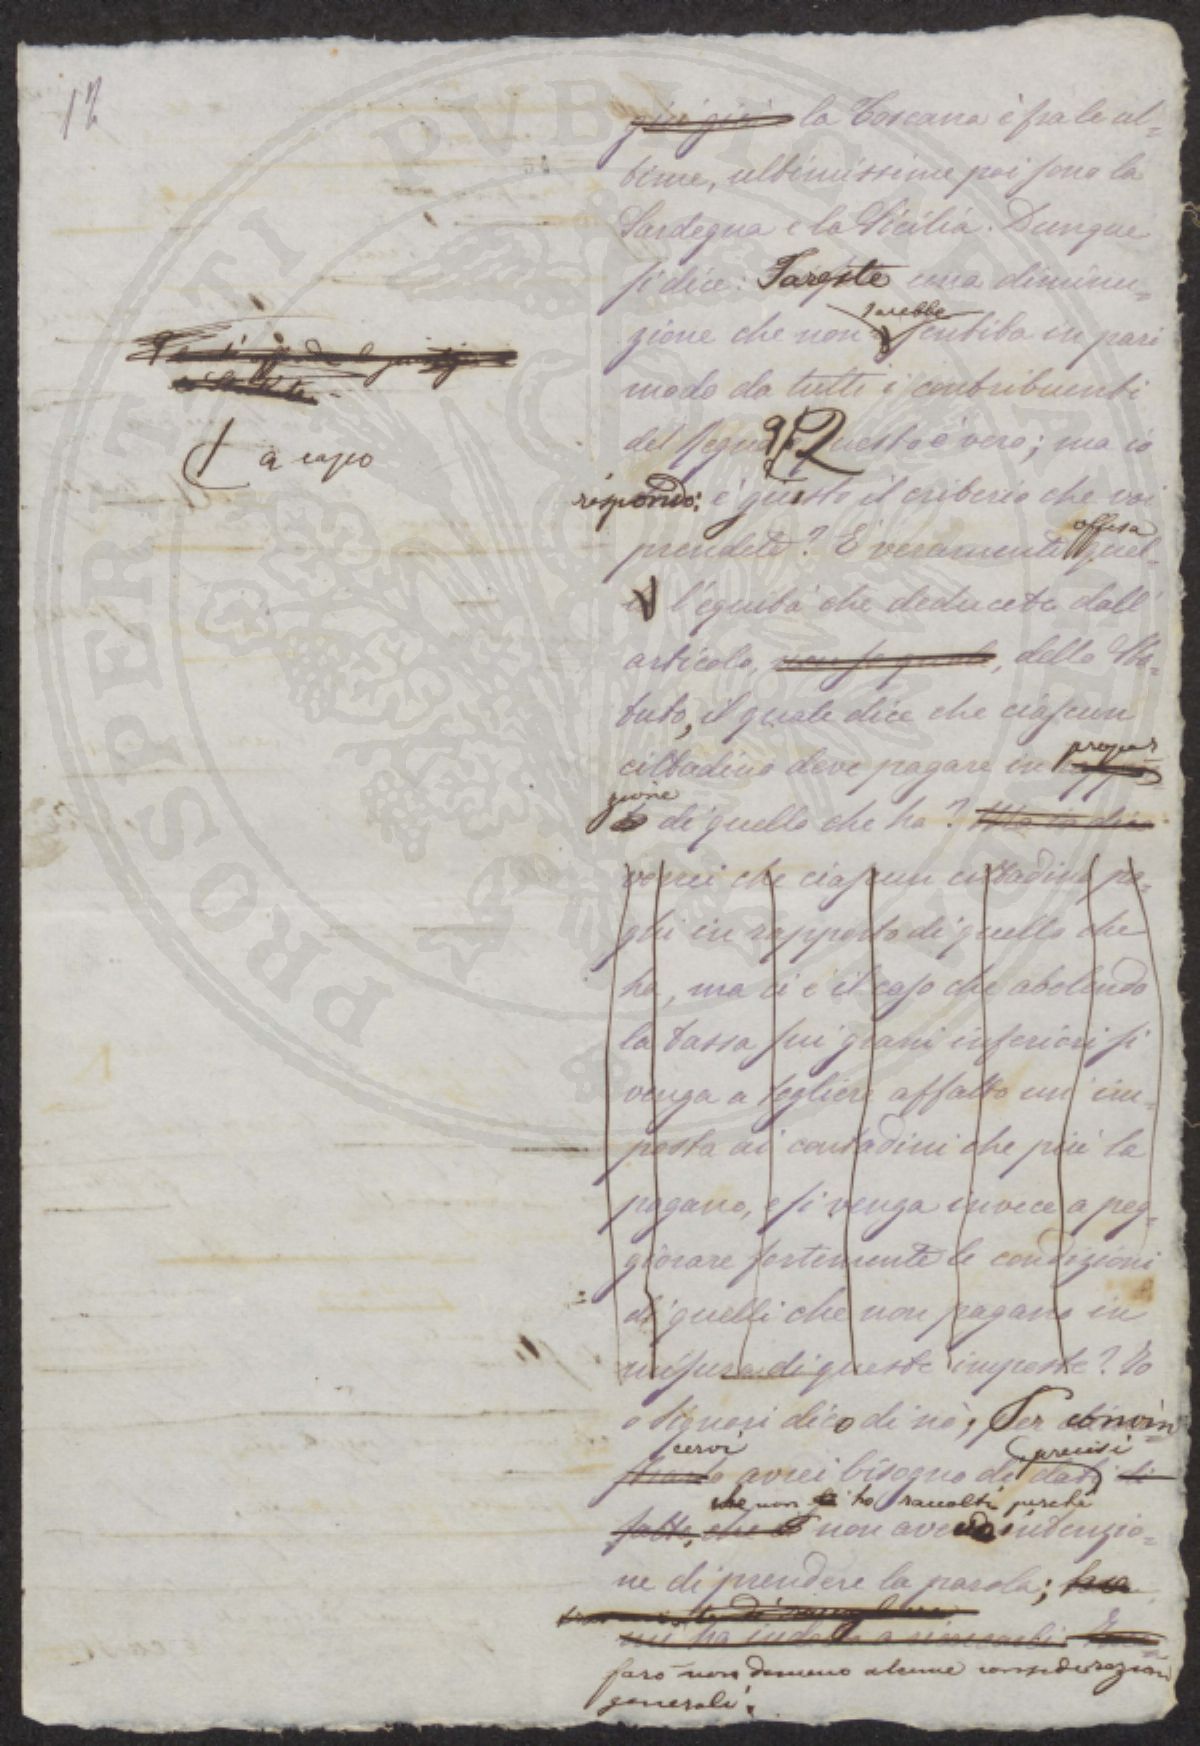 12
la Toscana è fra le ul=
time, ultimissime poi sono la
Sardegna e la Sicilia. Dunque
si dice: Fareste una diminu=
zione che non sarebbe sentita in pari
modo da tutti i contribuenti
del Regno. Questo è vero; ma io
rispondo: è giusto il criterio che voi
prendete? È veramente offesa
l'equità che deducete dall'
articolo, non so quale, dello Sta=
tuto, il quale dice che ciascun
cittadino deve pagare in propor=
zione di quello che ha? Ma io dico
vorrei che ciascun cittadino pa=
ghi in rapporto di quello che
ha, ma ci è il caso che abolendo
la tassa sui grani inferiori si
venga a togliere affatto un im=
posta ai contadini che più la
pagano, e si venga invece a peg=
giorare fortemente le condizioni
di quelli che non pagano in
misura di queste imposte? Io
o Signori dico di no; Per convin=
cervi avrei bisogno di dati precisi
che non ho raccolti perchè
non avendo intenzio=
ne di prendere la parola;
farò non dimeno alcune considerazioni
generali.
a capo
PROSPERITATI PVBLICAE